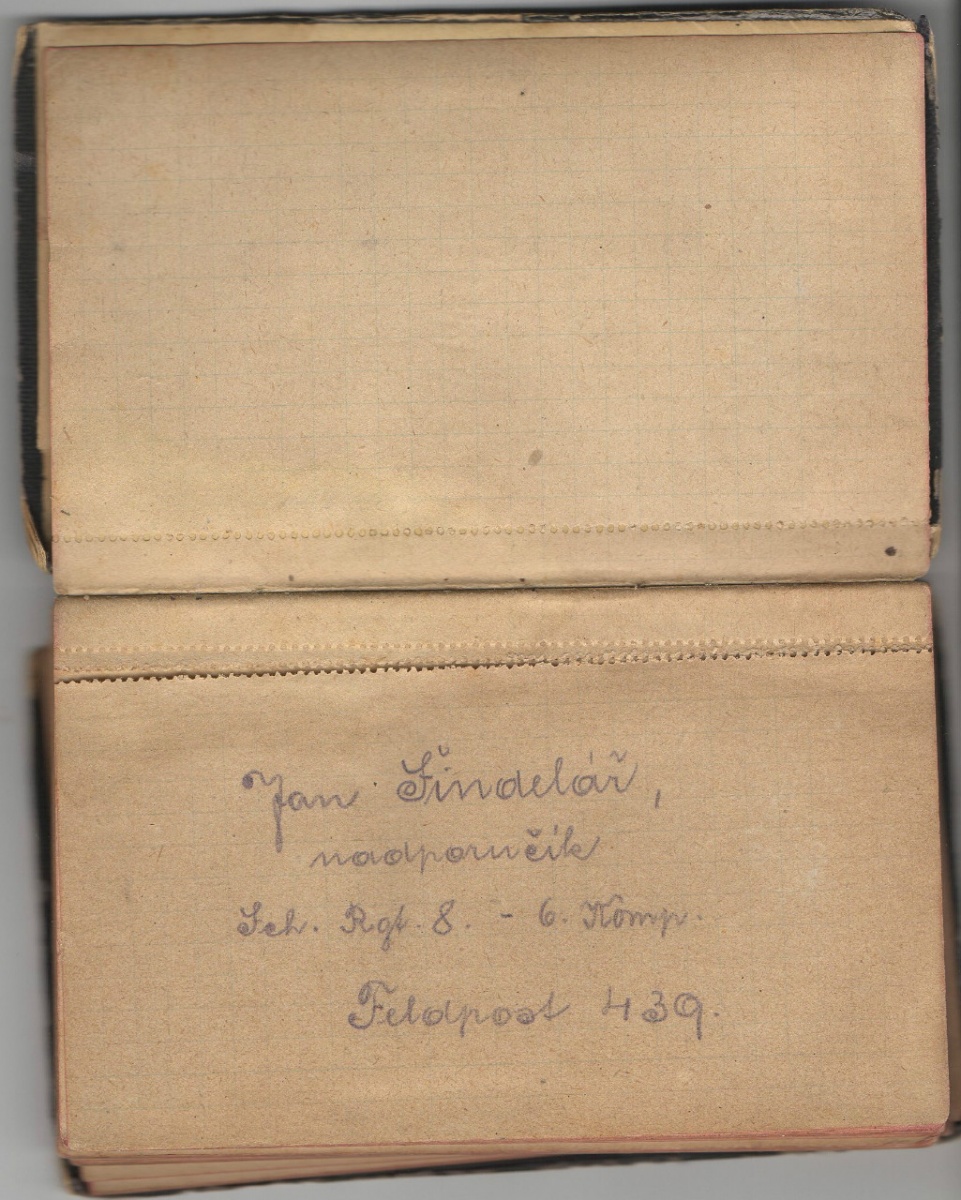 Jan Šindelář,
nadporučík
Sch. Rgt. 8. - 6. Komp.
Feldpost 439.